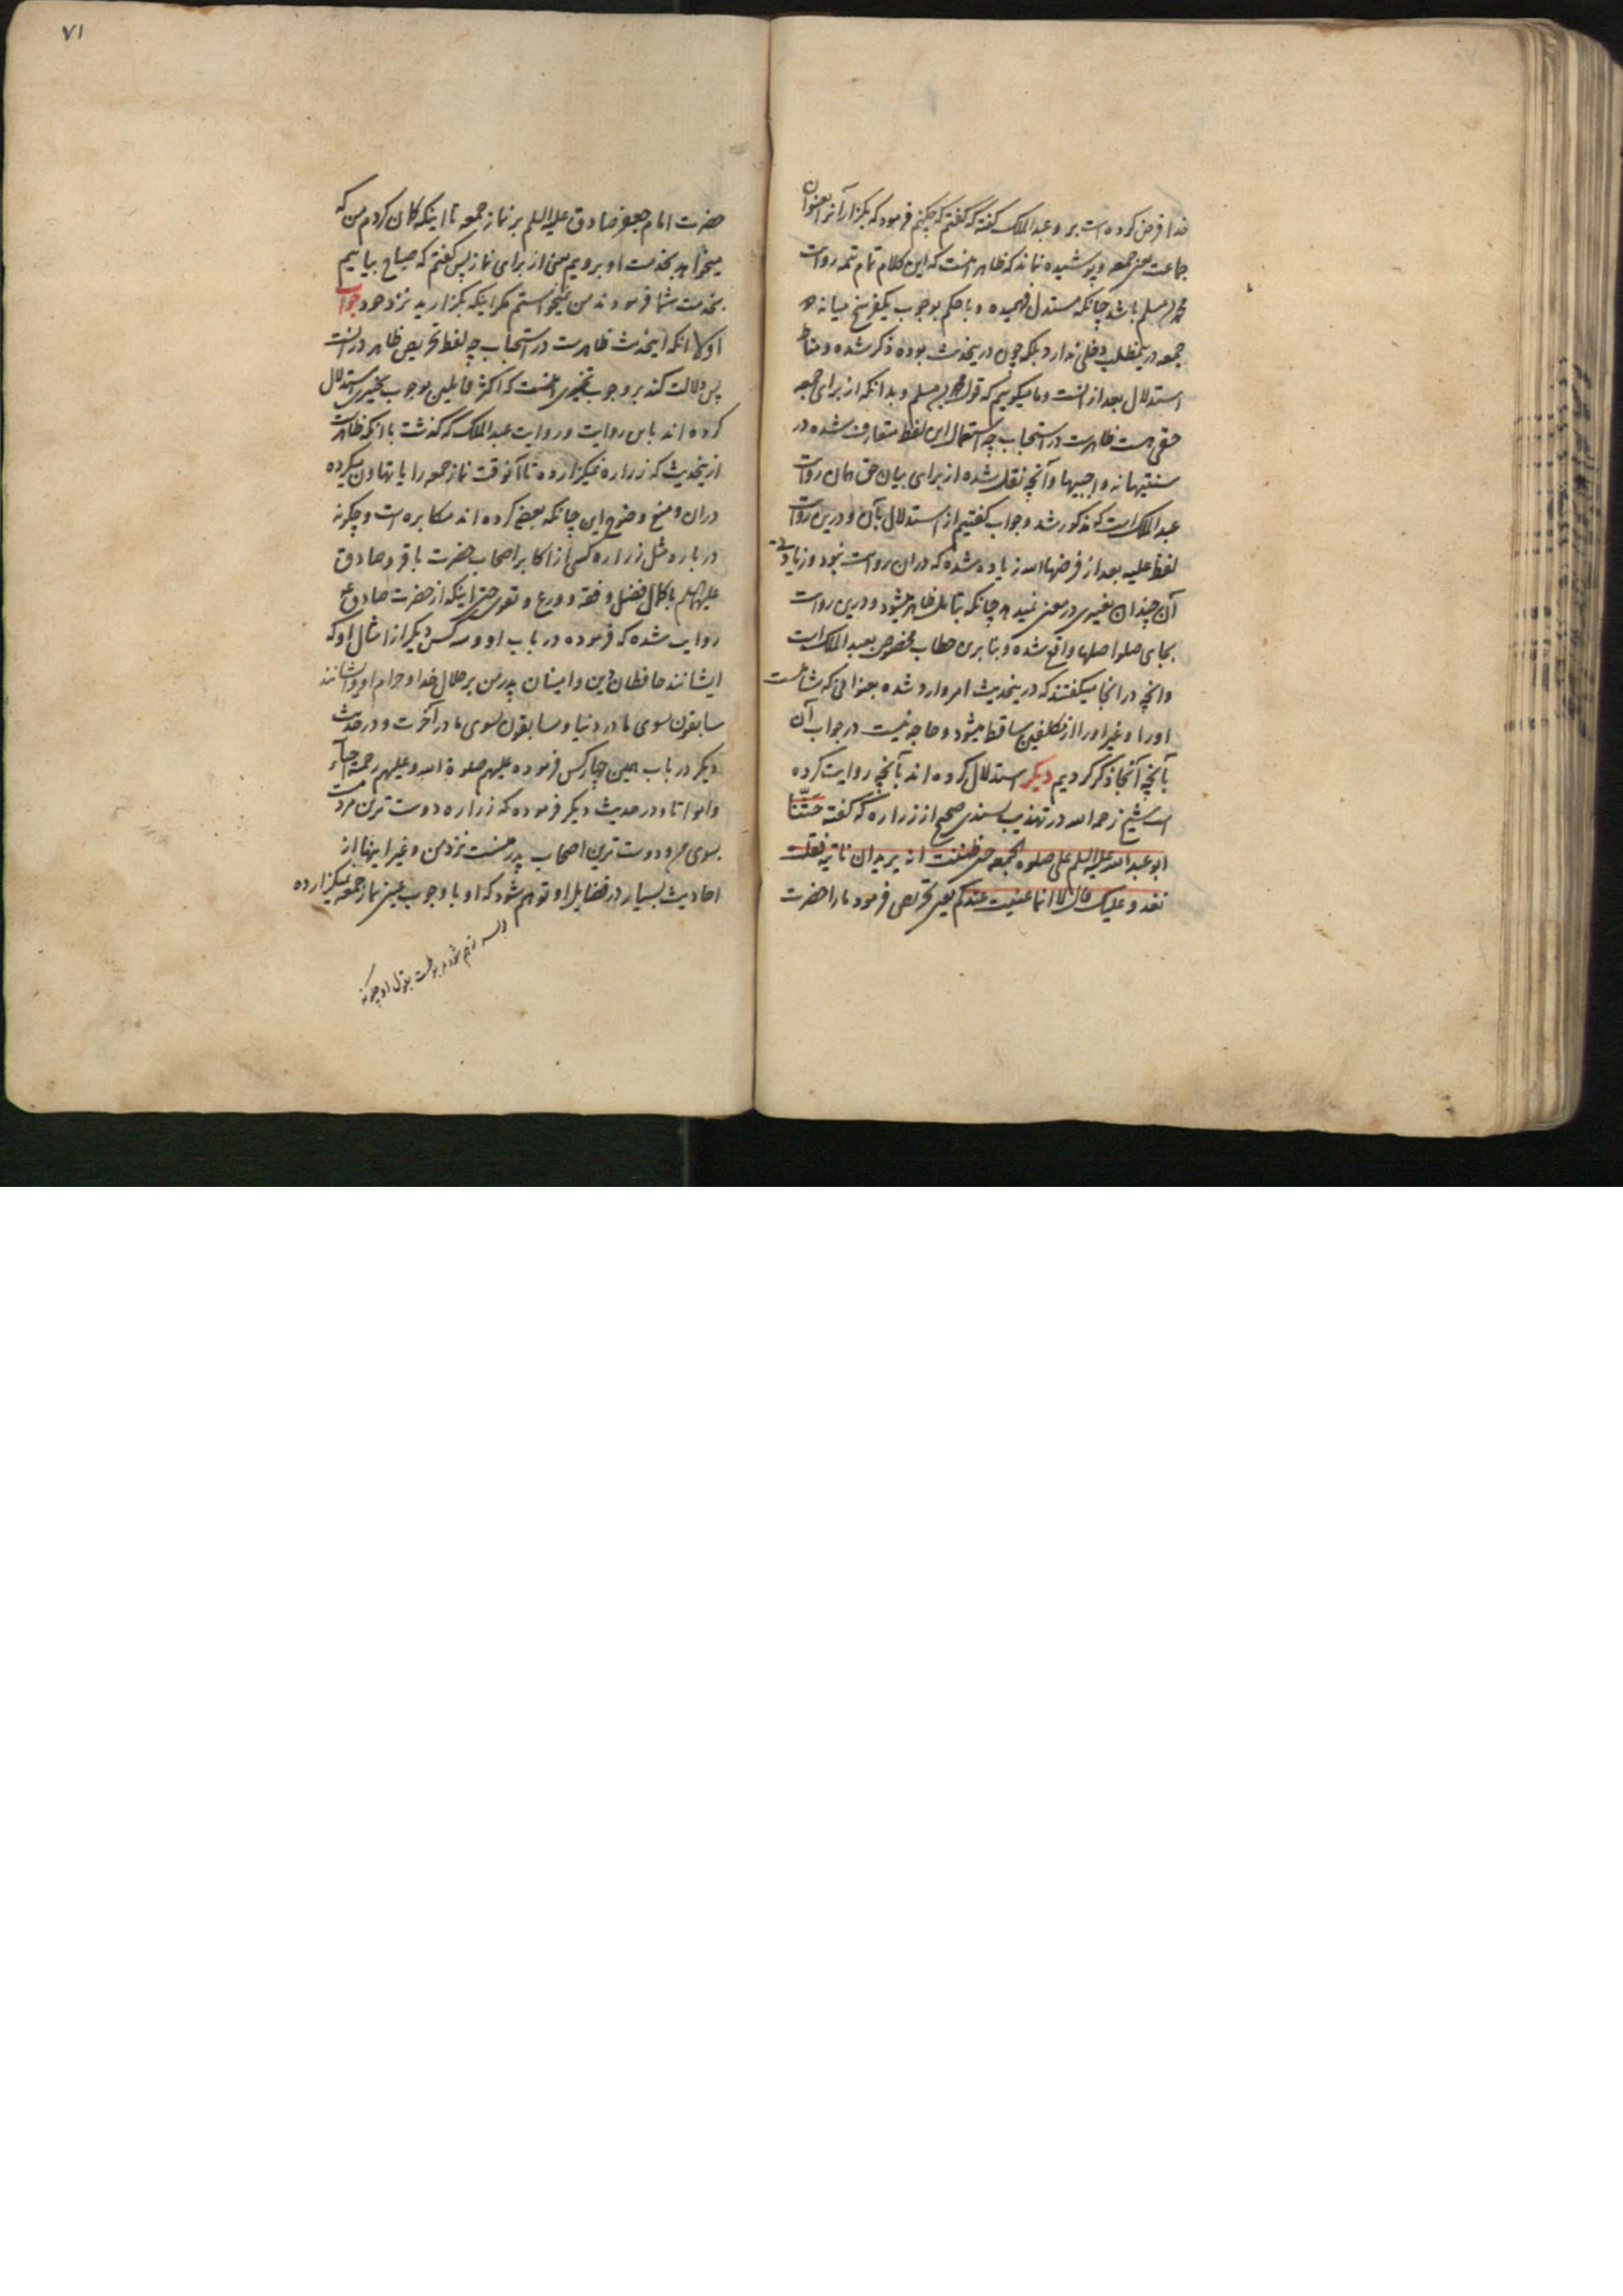 خدا فرض کرده است بر و عبدالملک گفته که گفتم که چکنم فرمود که بگزار آنرا بعنوان
جماعت یعنی جمعه و پوشیده نماند که ظاهر اینست که این کلام تمام تتمه روایت
محمد بن مسلم باشد چنانکه مستدل فهمیده و با حکم بوجوب یکفرسخ میانه دو
جمعه درینمطلب دخلی ندارد بلکه چون درینحدیث بوده ذکر شده و مناط
استدلال بعد از آنست و ما میگوییم که قول محمد بن مسلم و بدانکه از برای جمعه
حقی هست ظاهرست در استحباب چه استعمال این لفظ متعارف شده در
سنتیها نه واجبیها و آنچه نقل شده از برای بیان حق همان روایت
عبدالملک است که مذکور شد و جواب گفتیم از استدلال بآن و درین روایت
لفظ علیه بعد از فرضها الله زیاده شده که در آن روایت نبود و زیادتی
آن چندان تغییری در معنی نمیدهد چنانکه بتامل ظاهر میشود و درین روایت
بجای صلوا صلها واقع شده و بنابرین خطاب مخصوص بعبدالملک است
و آنچه در آنجا میگفتند که درینحدیث امر وارد شده بعنوانی که شاملست
او را و غیر او را از مکلفین ساقط میشود و حاجه نیست در جواب آن
بآنچه آنجا ذکر کردیم دیگر استدلال کرده اند بآنچه روایت کرده
است شیخ رحمه الله در تهذیب بسندی صحیح از زراره که گفته حثّنا
ابو عبدالله علیه السلم علی صلوة الجمعه حتی ظننت انه یرید ان ناتیه فقلت
نغدو علیک فقال لا انما عنیت عندکم یعنی تحریص فرمود ما را حضرت
۷۱
حضرت امام جعفر صادق علیه السلم بر نماز جمعه تا اینکه گمان کردم من که
میخواهد بخدمت او برویم یعنی از برای نماز پس گفتم که صباح بیاییم
بخدمت شما فرمودند من نمیخواستم مگر اینکه بگزارید نزد خود جواب
اولا آنکه اینحدیث ظاهرست در استحباب چه لفظ تحریص ظاهر در آنست
پس دلالت کند بر وجوب تخییری اینست که اکثر قایلین بوجوب تخییری استدلال
کرده اند باین روایت و روایت عبدالملک که گذشت با آنکه ظاهرست
ازینحدیث که زراره نمیگزارده تا آنوقت نماز جمعه را یا تهاون میکرده
در آن و منع وضوح این چنانکه بعضی کرده اند مکابره است و چگونه
درباره مثل زراره کسی از اکابر اصحاب حضرت باقر و صادق
علیهما السلم با کمال فضل و فقه و ورع و تقوی حتی اینکه از حضرت صادق ع
روایت شده که فرموده در باب او و سه کس دیگر از امثال او که
ایشانند حافظان دین و امینان پدر من بر حلال خدا و حرام او و ایشانند
سابقون بسوی ما در دنیا و سابقون بسوی ما در آخرت و در حدیث
دیگر در باب همین چهار کس فرموده علیهم صلوة الله و علیهم رحمة احیاء
و امواتا و در حدیث دیگر فرموده که زراره دوست ترین مردمست
بسوی من و دوست ترین اصحاب پدر منست نزد من و غیر اینها از
احادیث بسیار در فضایل او توهم شود که او با وجوب عینی نماز جمعه نمیگزارده